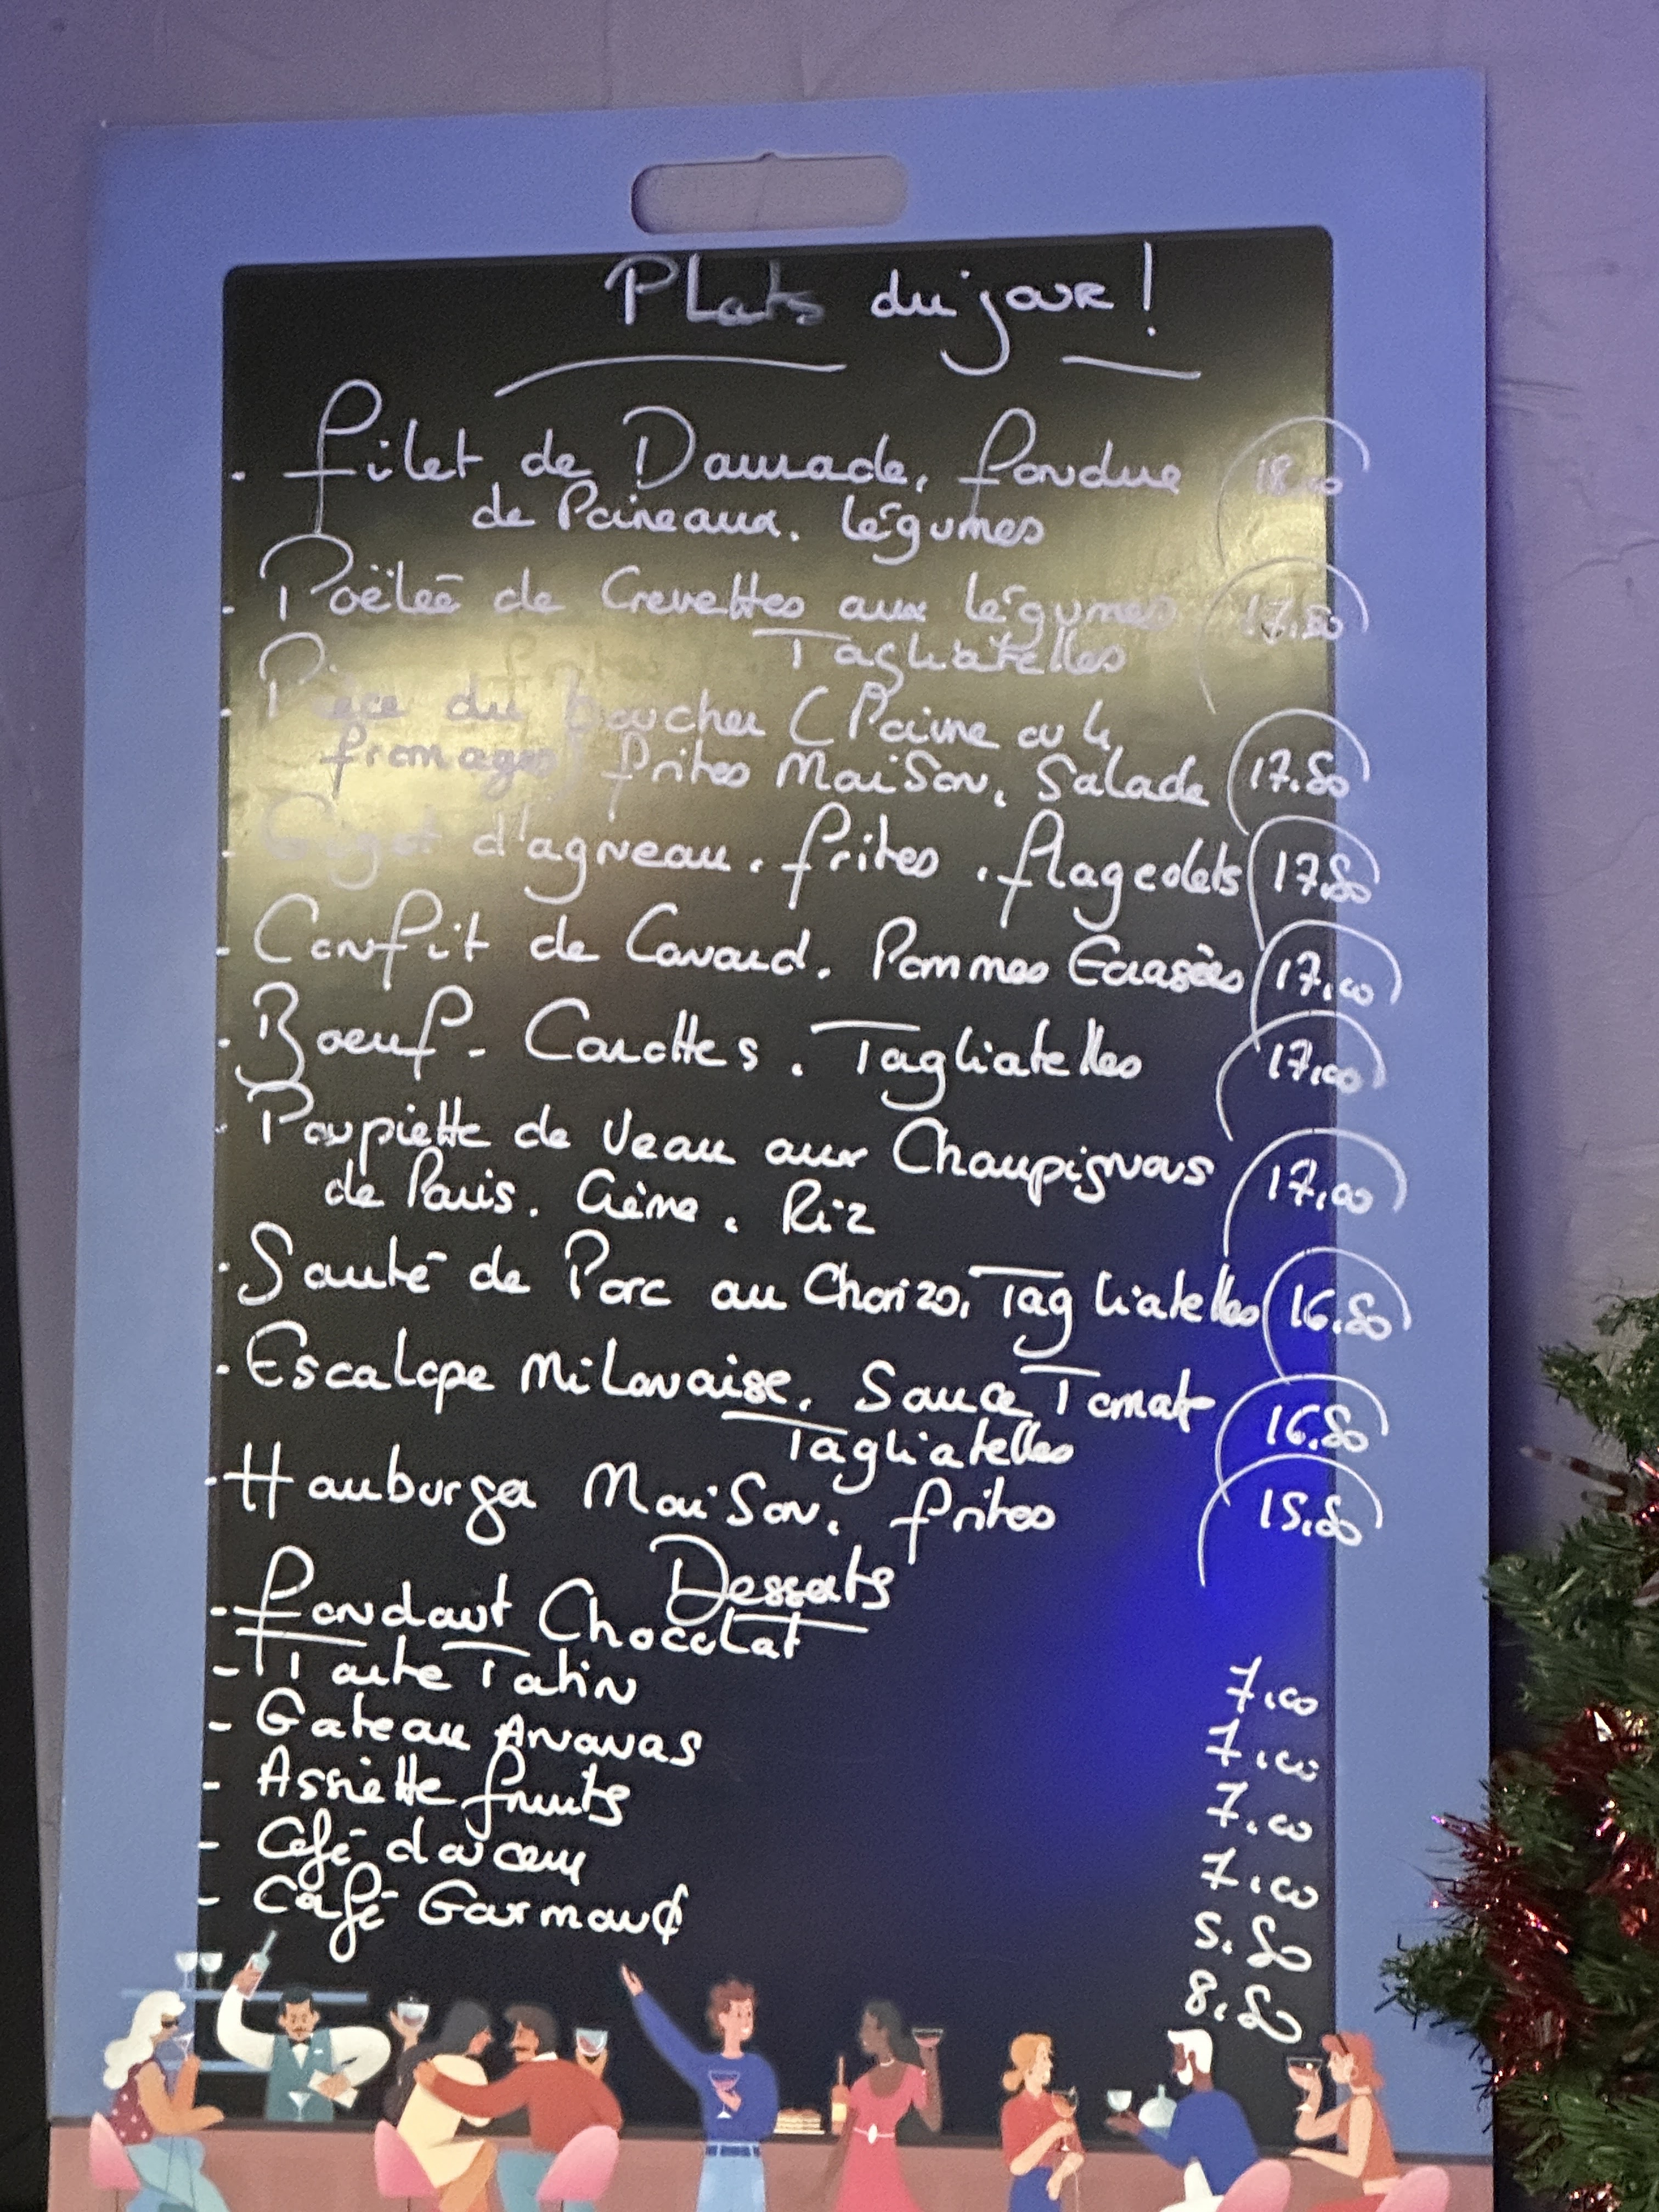 Plats du jour !
. Filet de Daurade, fondue 18.00
de Poireaux. légumes
. Poëleé de Crevettes aux légumes 17.80
Tagliatelles
. Pièce du boucher (Poivre ou 4
fromages) frites Maison, Salade 17.80
. Gigot d'agneau. frites. flageolets 17.80
. Confit de Canard. Pommes Ecrasées 17,00
. Boeuf - Carottes. Tagliatelles 17,00
. Paupiette de Veau aux Champignons
de Paris. Crème. Riz 17,00
. Sauté de Porc au Chorizo, Tagliatelles 16.80
. Escalope Milanaise, Sauce Tomate 16.80
Tagliatelles
. Hamburger Maison, frites 15.80
Desserts
- Fondant Chocolat 7.00
- Tarte Tatin 7.00
- Gateau Ananas 7.00
- Assiette fruits 7.00
- Café douceur 5.80
- Café Gourmand 8.80